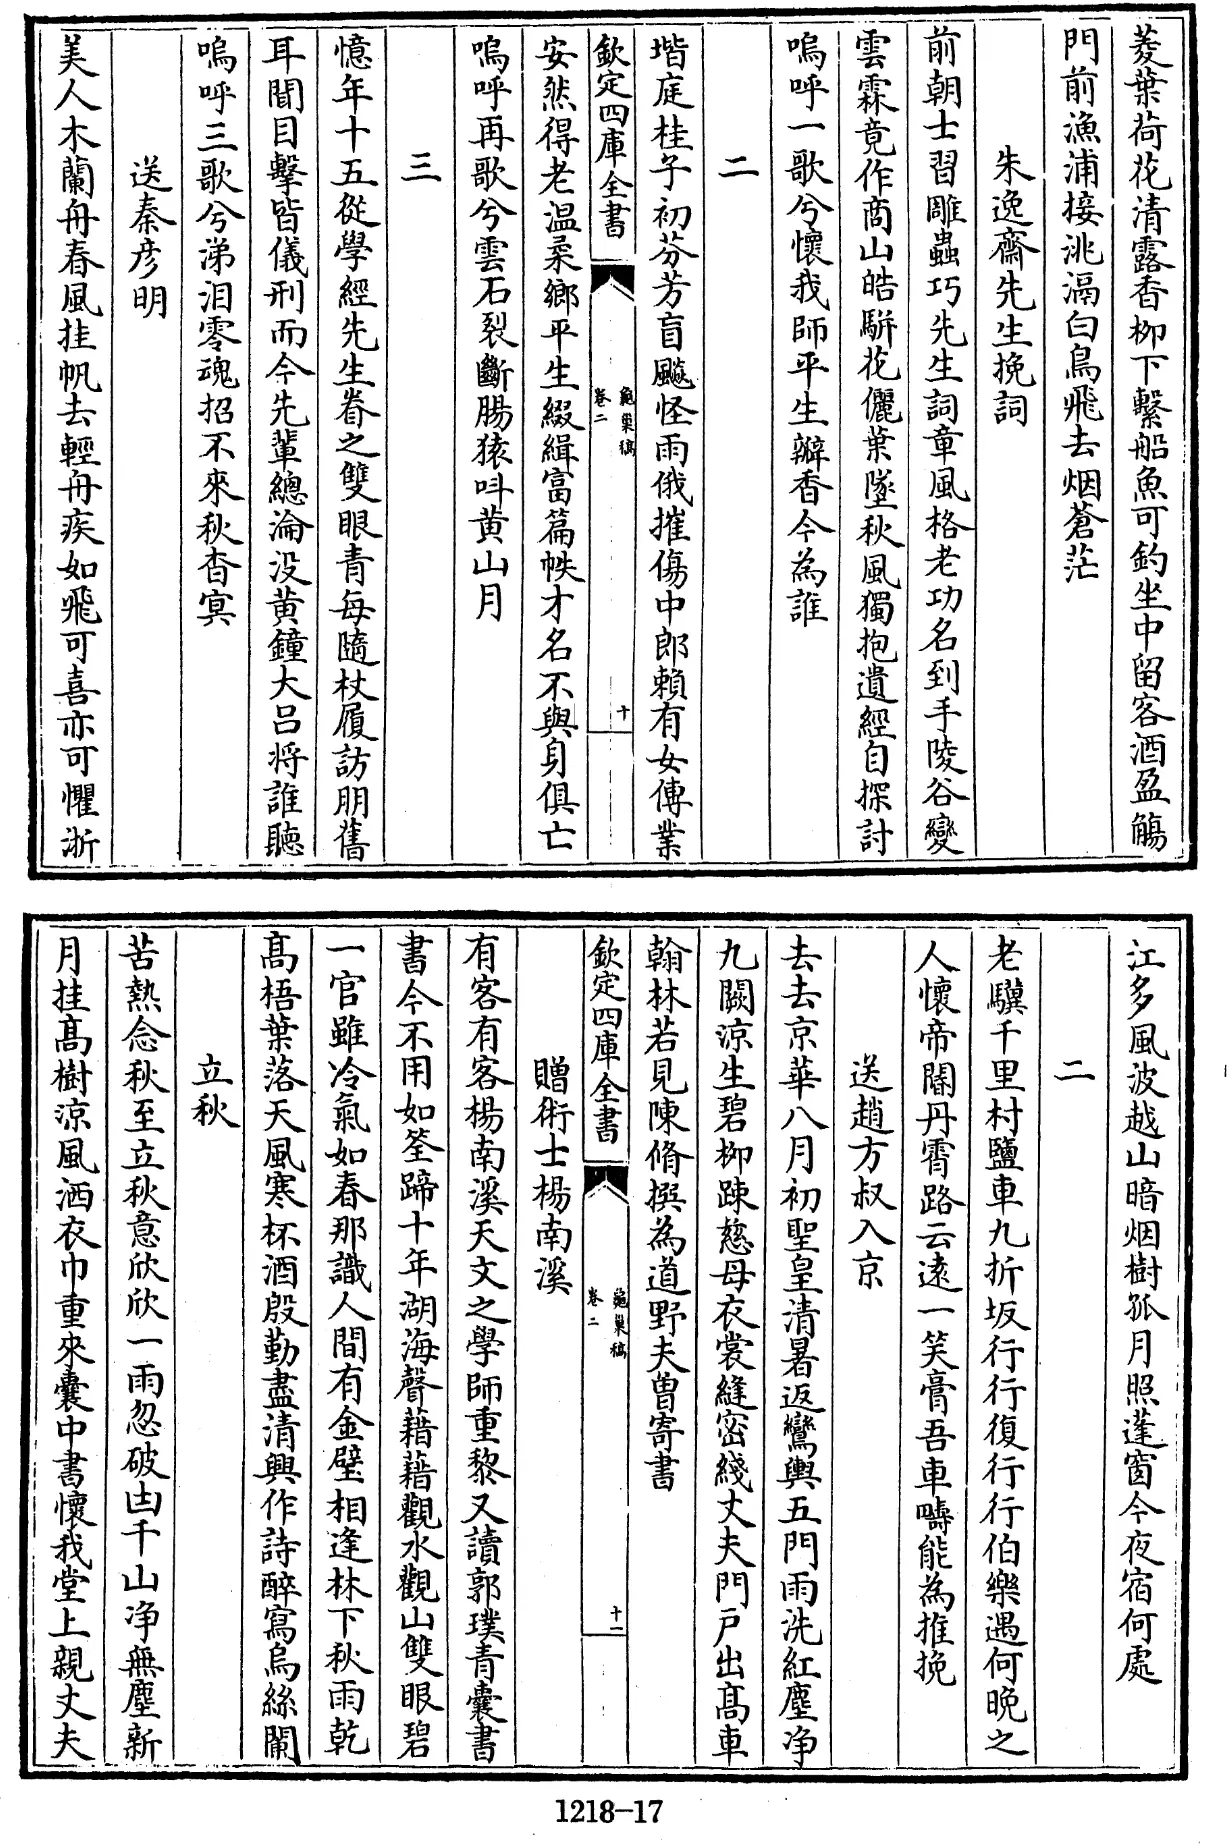 菱葉荷花清露香柳下繫船魚可釣坐中留客酒盈觴
門前漁浦接洮滆白鳥飛去烟蒼茫
朱逸齋先生挽詞
前朝士習雕蟲巧先生詞章風格老功名到手陵谷變
雲霖竟作商山皓駢花儷葉墜秋風獨抱遺經自探討
嗚呼一歌兮懷我師平生瓣香今為誰
二
堦庭桂子初芬芳盲飈怪雨俄摧傷中郎賴有女傳業
欽定四庫全書
龜巢稿
卷二
十
安然得老温柔鄉平生綴緝富篇帙才名不與身俱亡
嗚呼再歌兮雲石裂斷腸猿呌黄山月
三
憶年十五從學經先生眷之雙眼青每隨杖履訪朋舊
耳聞目擊皆儀刑而今先輩總淪没黄鐘大吕将誰聽
嗚呼三歌兮涕泪零魂招不來秋杳冥
送秦彦明
美人木蘭舟春風挂帆去輕舟疾如飛可喜亦可懼浙
江多風波越山暗烟樹孤月照蓬窗今夜宿何處
二
老驥千里村鹽車九折坂行行復行行伯樂遇何晚之
人懷帝閽丹霄路云逺一笑膏吾車疇能為推挽
送趙方叔入京
去去京華八月初聖皇清暑返鸞輿五門雨洗紅塵净
九闕凉生碧栁踈慈母衣裳縫宻綫丈夫門户出髙車
翰林若見陳脩撰為道野夫曽寄書
欽定四庫全書
龜巢稿
卷二
十一
贈術士楊南溪
有客有客楊南溪天文之學師重黎又讀郭璞青囊書
書今不用如筌蹄十年湖海聲藉藉觀水觀山雙眼碧
一官雖冷氣如春那識人間有金璧相逢林下秋雨乾
髙梧葉落天風寒杯酒殷勤盡清興作詩醉寫烏絲闌
立秋
苦熱念秋至立秋意欣欣一雨忽破由千山净無塵新
月挂髙樹凉風洒衣巾重來囊中書懷我堂上親丈夫
1218-17